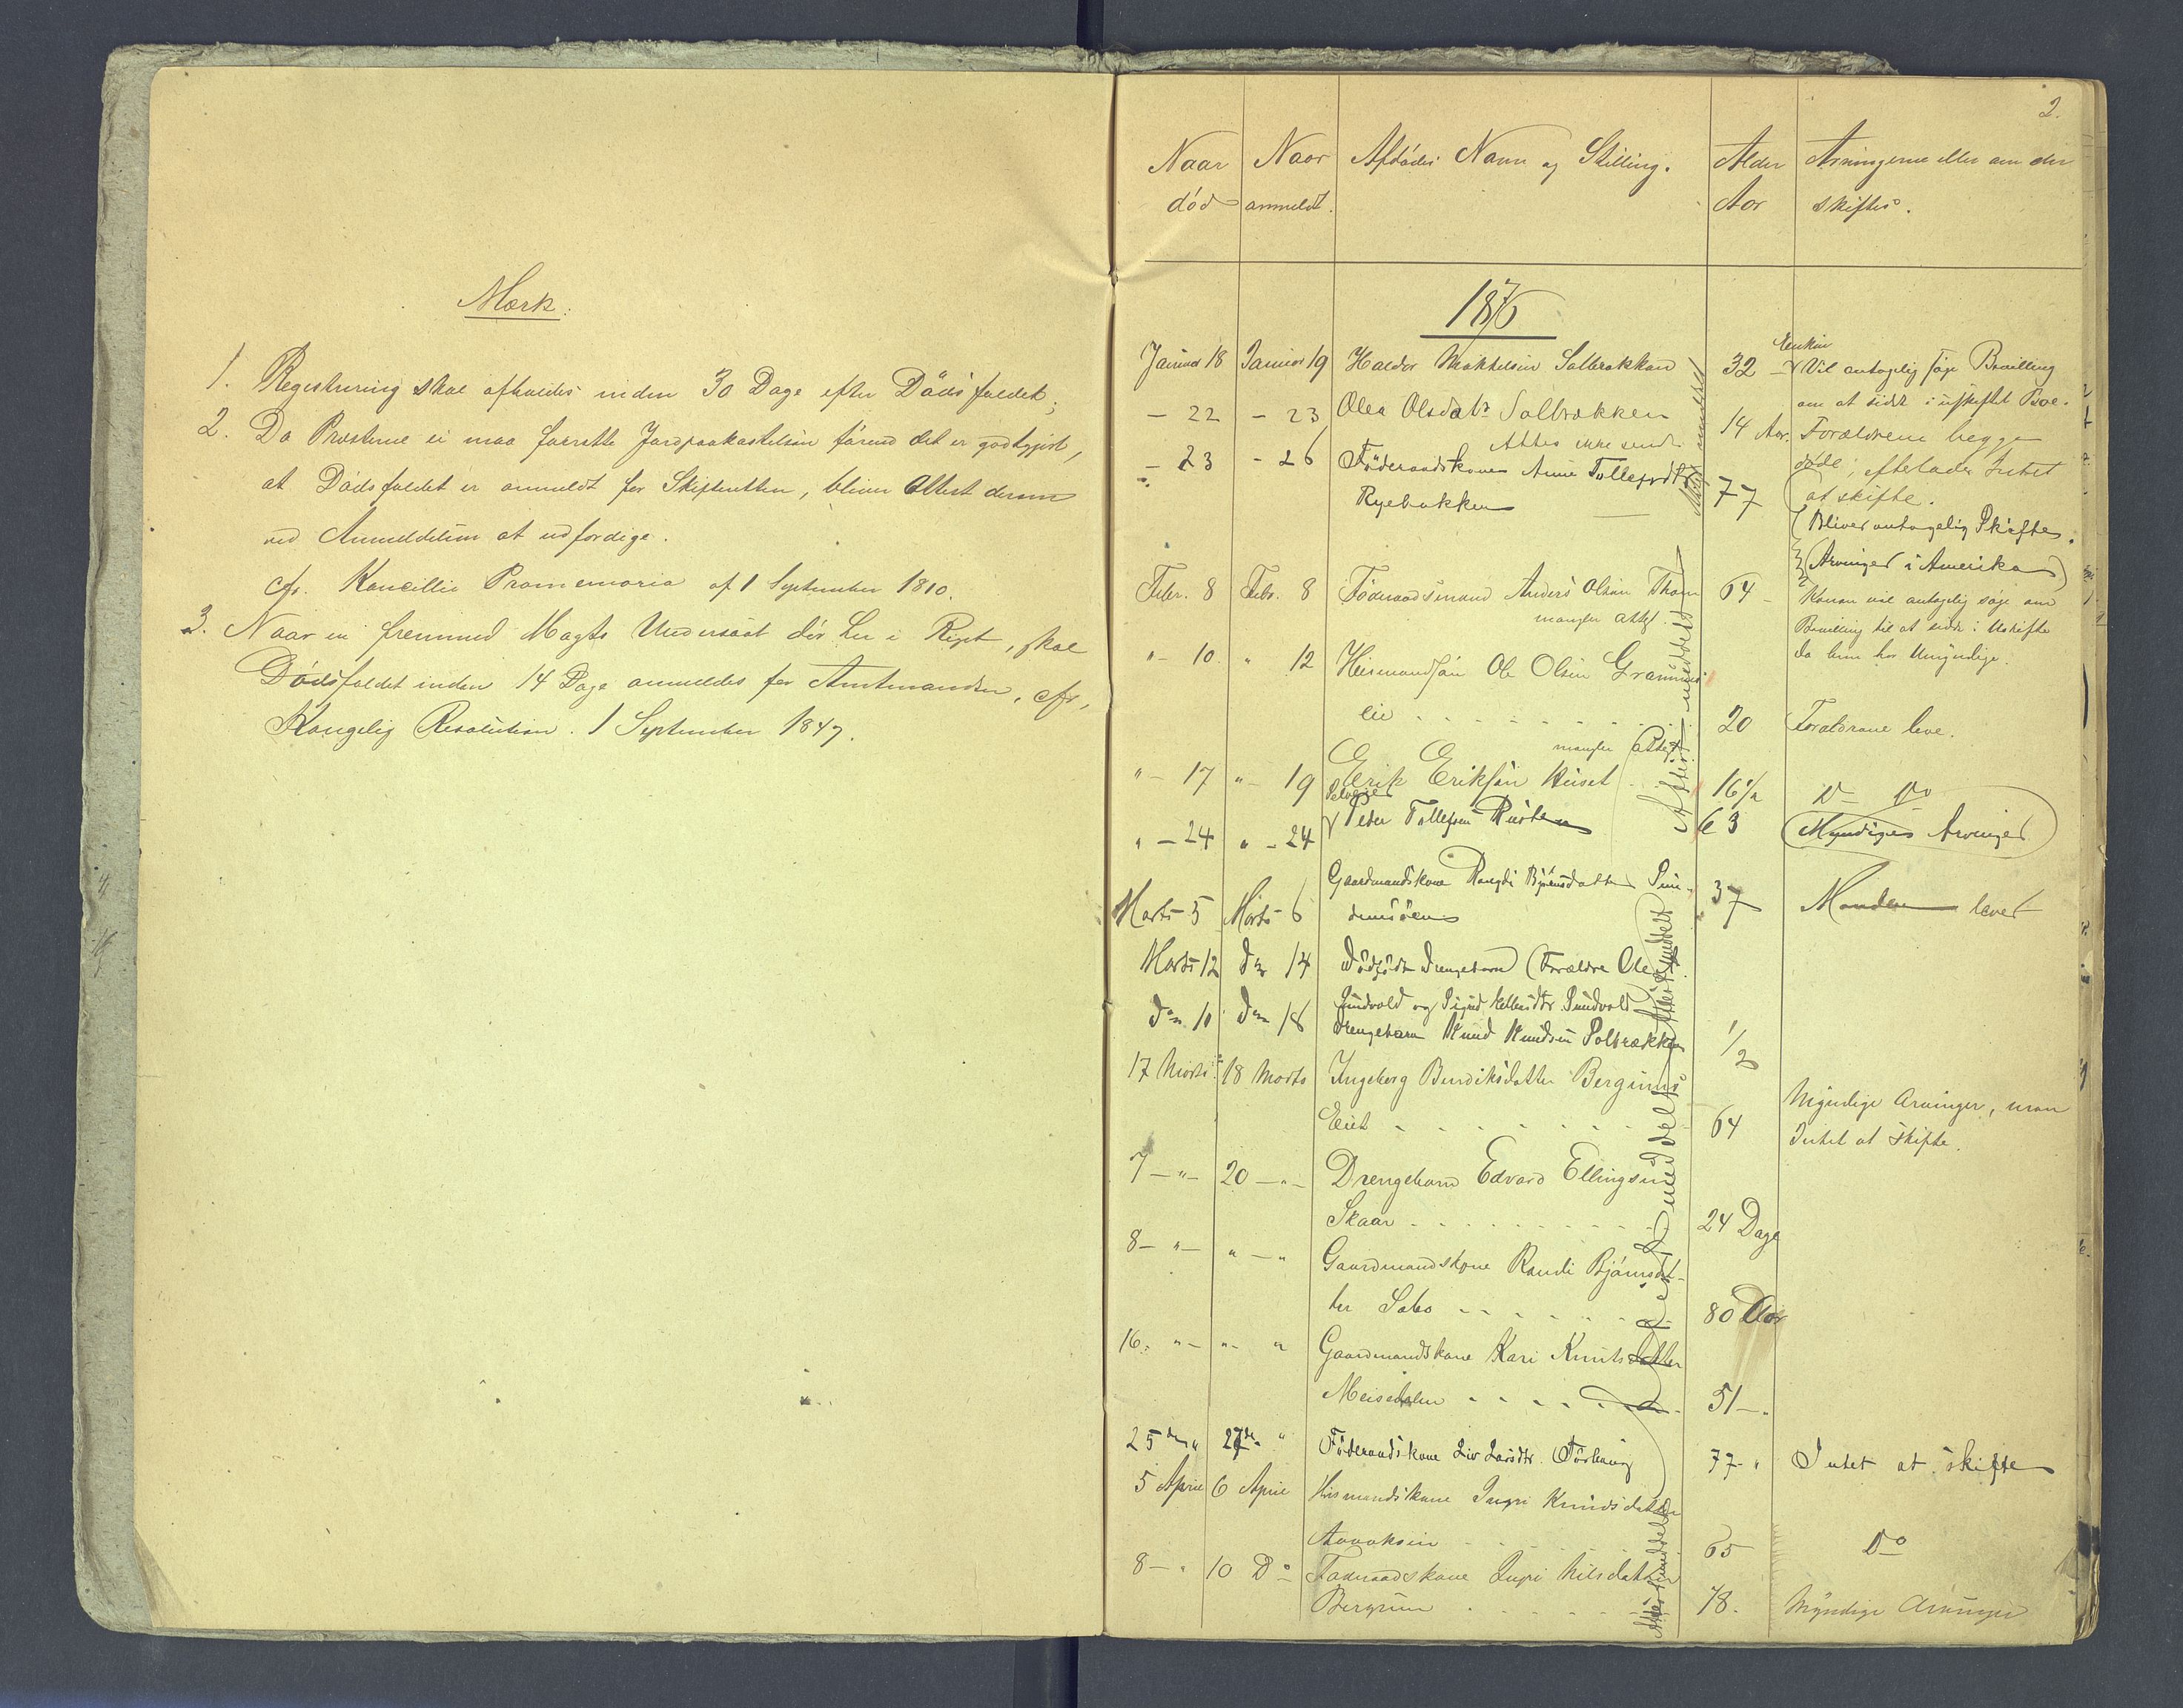 Mærk:
1. Registrering skal afholdes inden 30 Dage efter Dødsfaldet;
2. Da Præsterne ei maa forrette Jordpaakastelsen førend det er godtgjort,
at Dødsfaldet er anmeldt for Skifteretten, bliver Attest derom
ved Anmeldelsen at udfærdige.
cfr. Kancellie Promemoria af 1 September 1810.
3. Naar en fremmed Magts Undersaat dør her i Riget, skal
Dødsfaldet inden 14 Dage anmeldes for Amtmanden, cfr,
Kongelig Resolution. 1 September 1847.
2.
Naar Naar Afdødes Navn og Stilling. Alder Arvingerne eller om der
død anmeldt. Aar skiftes.
1876
Enken
Januar 18 Januar 19 Haldor Solbrækken 32 Vil antagelig søge Bevilling
om at sidde i uskiftet Boe.
– 22 – 23 Olea Olsdatr Solbrækken 14 Aar. Forældrene begge
Attes ikke sendt døde, efterlader Intet
– 23 – 26 Føderaadskone Anne Tollefsdtr 77 at skifte.
Ryebakken
Bliver antagelig Skifte.
(Arvinger i Amerika)
Febr. 8 Febr. 8 Føderaadsmand Anders Olsen 64 Konen vil antagelig søge om
mangler attest. Bevilling til at sidde i Uskifte
da hun har Umyndige.
" – 10. " 12 Huusmandssøn Ole Olsen
lie 20 Forældrene leve.
mangler Attest
" – 17 " – 19 Erik Eriksøn Huset 16 1/2 Do Do
" – 24 " – 24 Peder Tollefsen Rusten 63 Myndige Arvinger
Gaardmandskone Rangdi Bjørnsdatter
Marts 5 Marts 6 37 Manden lever
Marts 12 do 14 Dødfødt Drengebarn (Forældre Ole
Sundvold og Sigrid Sundvold)
do 11 do 18 Drengebarn Knud Knudsen Solbrækken 1/2
17 Marts 18 Marts Ingeborg Bendiksdatter Bergums
Eiet 64 Myndige Arvinger, men
Intet at skifte.
7 – " – 20 – " – Drengebarn Edvard Ellingsen
Skaar 24 Dage
8 – " – " – " Gaardmandskone Randi Bjørnsdat-
ter Sabo 80 Aar
16. " – " – " Gaardmandskone Kari Knutsdatter
51 – "
25de " 27de " Føderaadskone Liv Larsdtr. 77 – " Intet at skifte
5 April 6 April Huusmandskone Ingri Knudsdatter
65 Do
8 – " 10 Do Føderaadskone Ingri Nilsdatter
Bergum 78. Myndige Arvinger
Attest meddelt
Attest meddelt
Attest meddelt
Attest meddelt
Attest meddelt